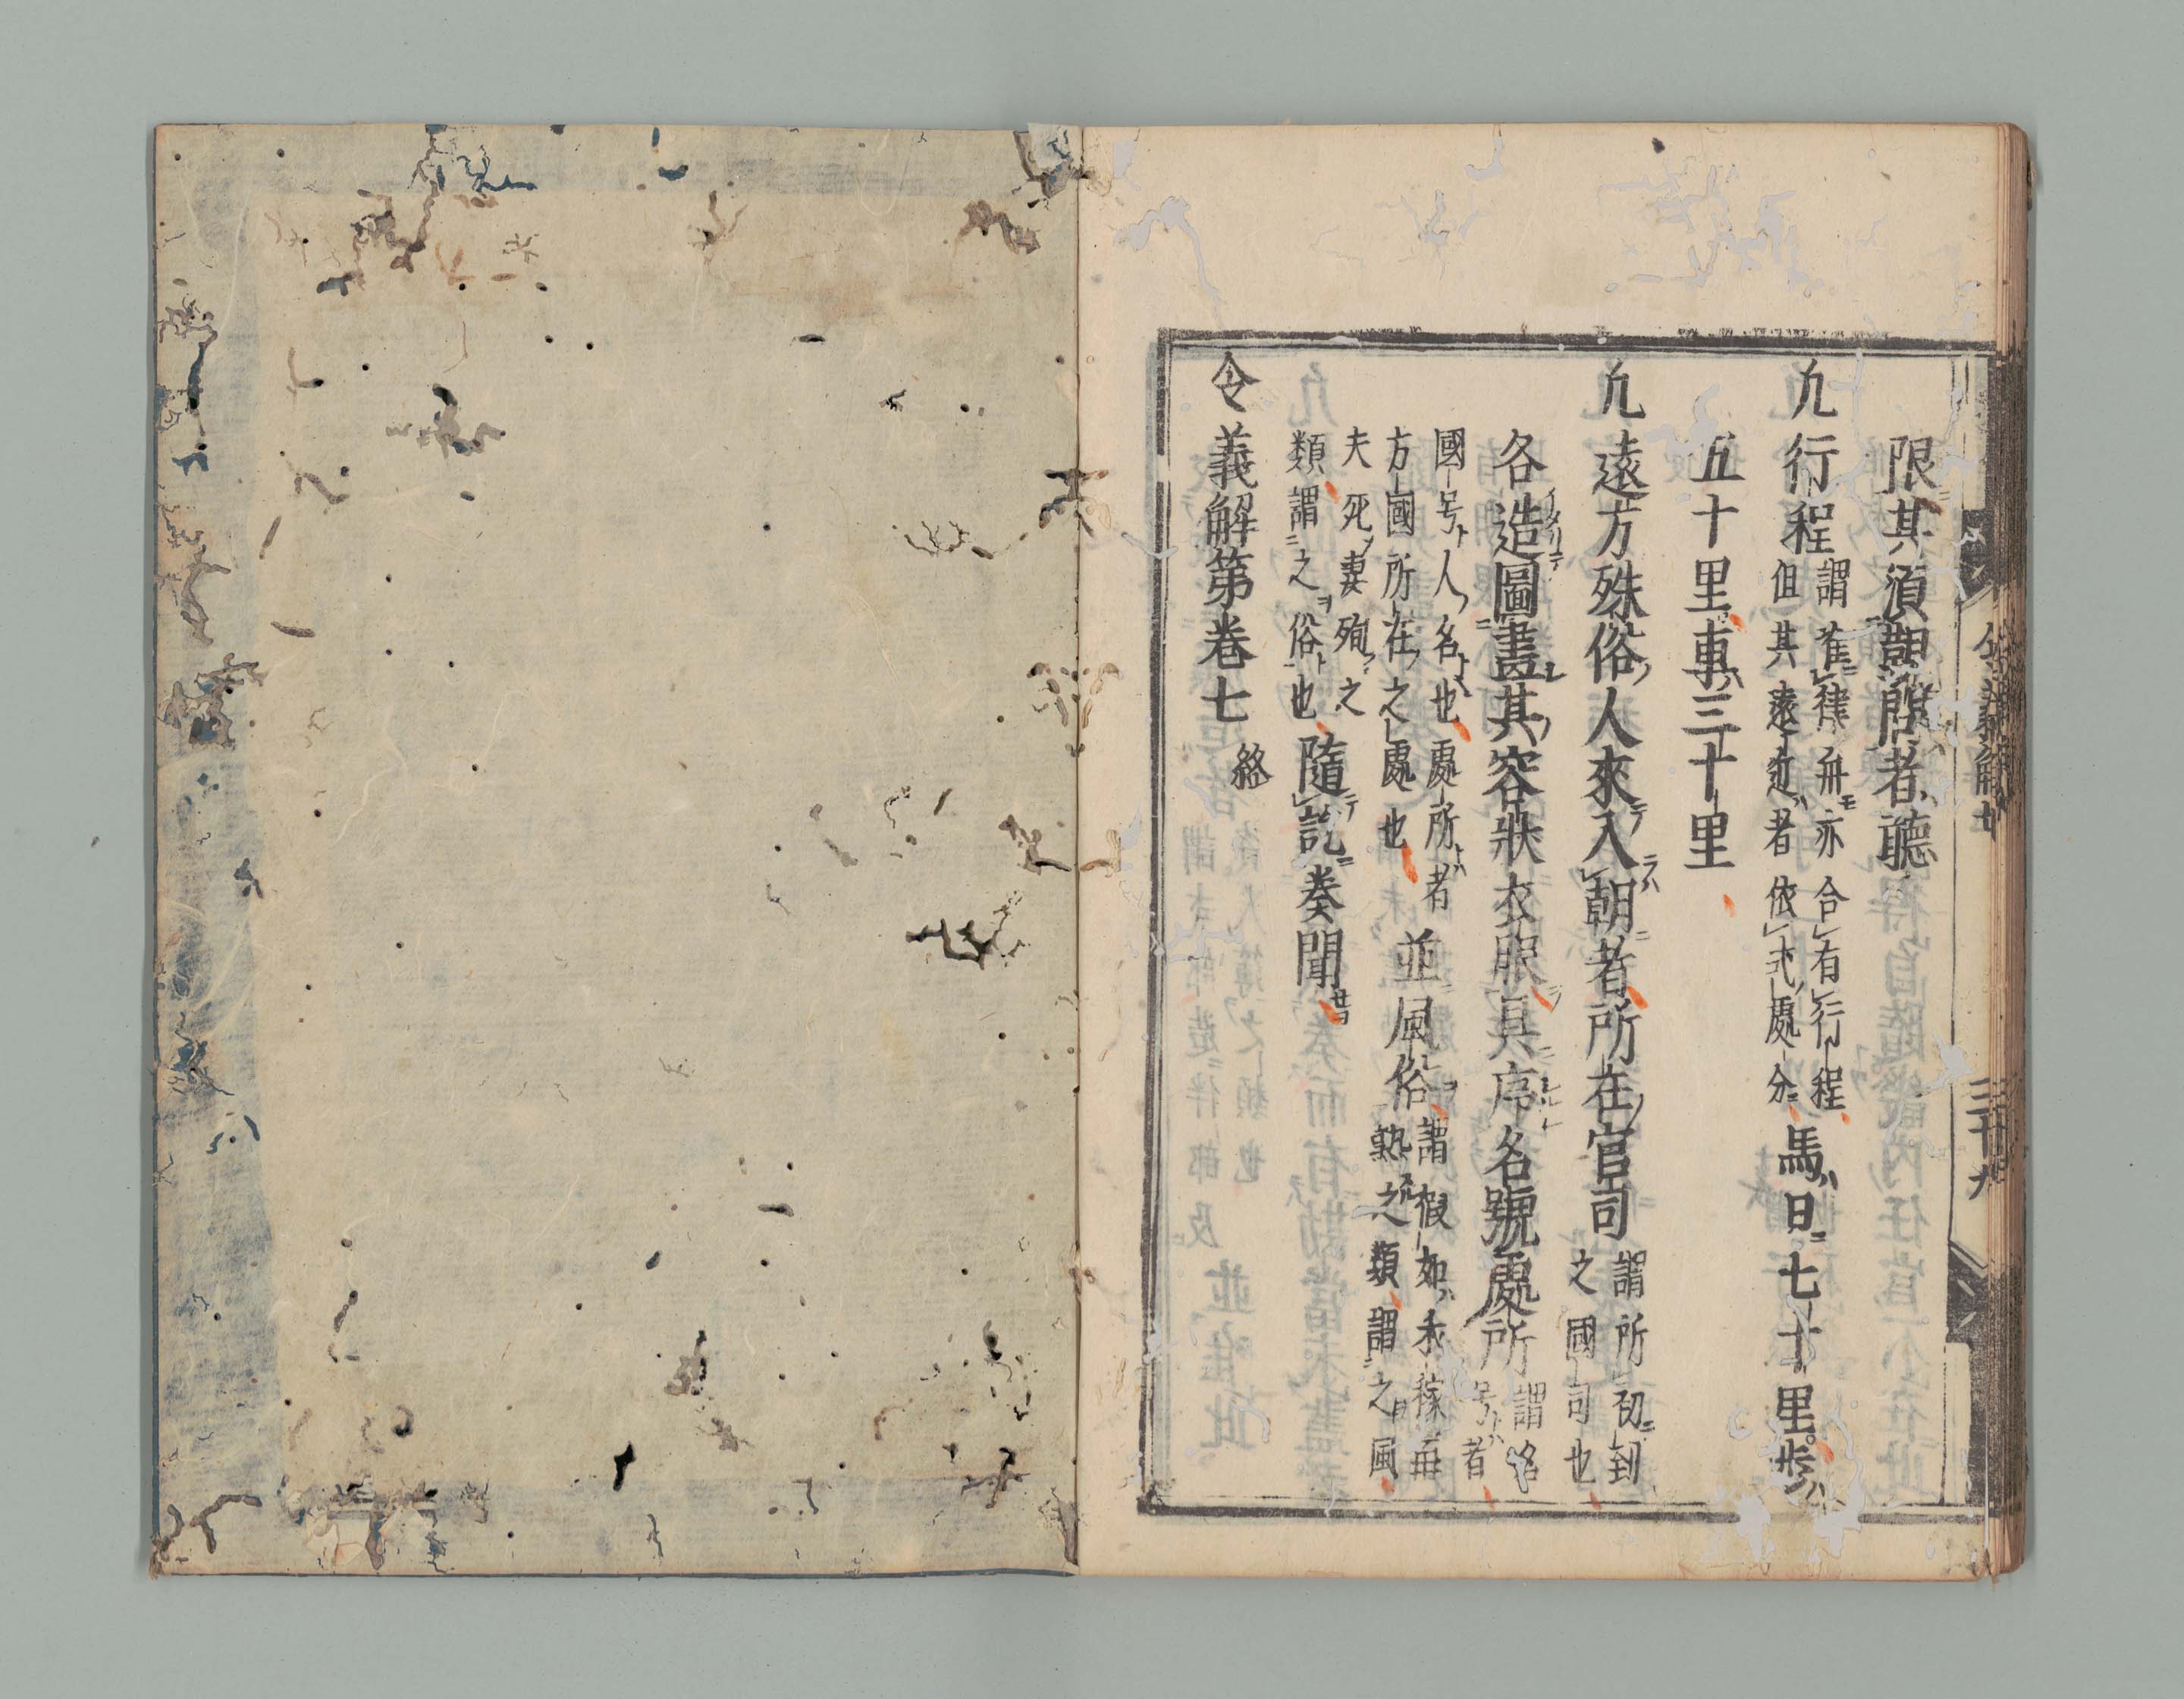 限其須朝廨者聽
凢行程謂准律舟亦合有行程
但其遠近者依式處分馬日七十里步
五十里車三十里
凢遠方殊俗人來入朝者所在官司謂所初到
之國司也
各造圖畫其容狀衣服具序名號處所謂名
号者
國号人名也處所者
方國所在之處也並風俗謂假如禾稼再
熟之類謂之風
夫死妻殉之
類謂之俗也隨訖奏聞
令義解第卷七 終
令義解七 三十九